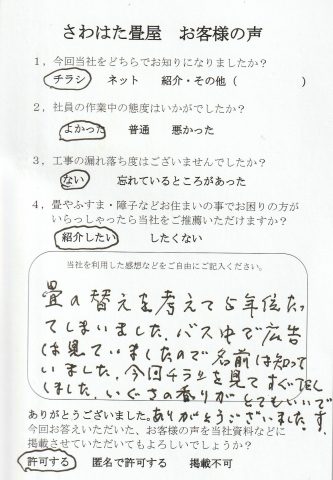 さわはた畳屋 お客様の声
1，今回当社をどちらでお知りになりましたか？
チラシ ネット 紹介・その他（ ）
2，社員の作業中の態度はいかがでしたか？
よかった 普通 悪かった
3，工事の漏れ落ち度はございませんでしたか？
ない 忘れているところがあった
4，畳やふすま・障子などお住まいの事でお困りの方が
いらっしゃったら当社をご推薦いただけますか？
紹介したい したくない
当社を利用した感想などをご自由にご記入ください。
畳の替えを考えて5年位たっ
てしまいました。バス中で広告
は見ていましたので名前は知って
いました。今回チラシを見てすぐTEL
しました。いぐさの香りがとてもいいです。
ありがとうございました。ありがとうございました。
今回お答えいただいた、お客様の声を当社資料などに
掲載させていただいてもよろしいでしょうか？
許可する 匿名で許可する 掲載不可